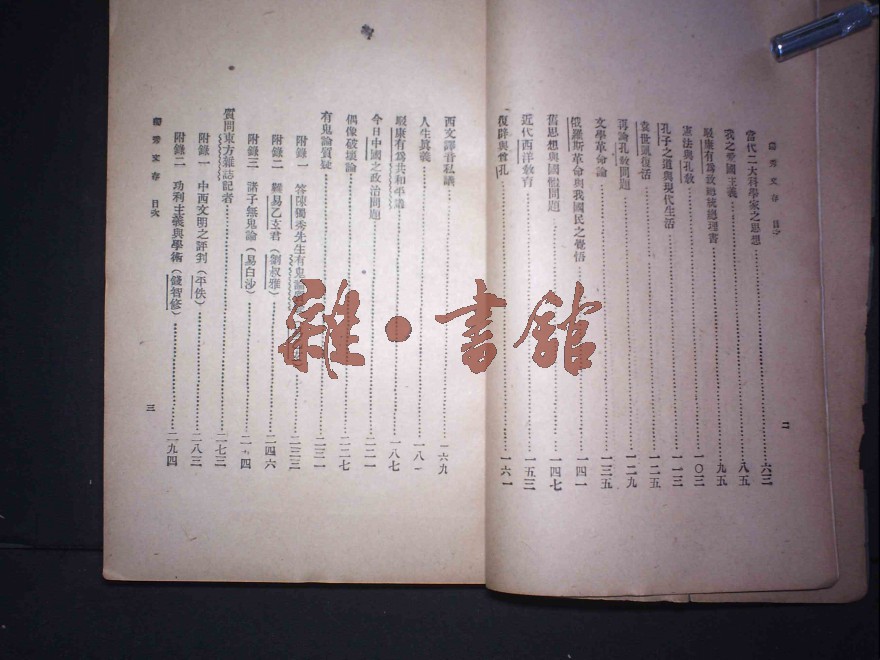 獨秀文存 目次
當代二大科學家之思想 六三
我之愛國主義 八五
駁康有為致總統總理書 九五
憲法與孔教 一〇三
孔子之道與現代生活 一一三
袁世凱復活 一二五
再論孔教問題 一二九
文學革命論 一三五
俄羅斯革命與我國民之覺悟 一四一
舊思想與國體問題 一四七
近代西洋教育 一五三
復辟與尊孔 一六一
二
西文譯音私議 一六九
人生真義 一八一
駁康有為共和平議 一八七
今日中國之政治問題 二二一
偶像破壞論 二二七
有鬼論質疑 二三一
附錄一 答陳獨秀先生有鬼論 二三三
附錄二 難易乙玄君（劉叔雅） 二四六
附錄三 諸子無鬼論（易白沙）
質問東方雜誌記者 二七三
附錄一 中西文明之評判（平佚） 二八三
附錄二 功利主義與學術（錢智修） 二九四
獨秀文存 目次
三
雜·書館